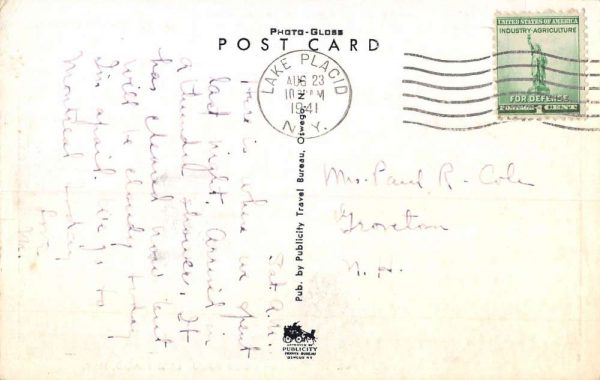 PHOTO-GLOSS
POST CARD
LAKE PLACID
AUG 23
10 AM
1941
N.Y.
UNITED STATES OF AMERICA
INDUSTRY-AGRICULTURE
FOR DEFENSE
1 CENT
Sat. A.M.
This is where we spent
last night. Arrived in
a thunder shower. It
has cleared now but
will be cloudy today
I'm afraid. We go to
Montreal today.
Mrs. Paul R. Cole
Groveton
N. H.
Pub. by Publicity Travel Bureau, Oswego, N.Y.
PUBLICITY
TRAVEL BUREAU
OSWEGO NY